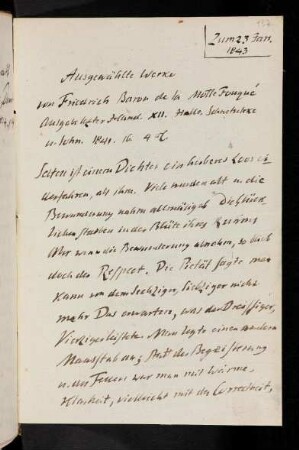 Zum 23 Jan.
1843
Ausgewählte Werke
von Friedrich Baron de la Motte Fouqué
Ausgabe letzter Hand. XII. Halle. Schwetschke
u. Sohn. 1841. 16. 4
Selten ist einem Dichter ein herberes Loos
widerfahren, als ihm. Viele wurden alt u. die
Bewunderung nahm allmälig ab. Die Glück
lichen starben in der Blüte ihres Ruhmes
Aber wenn die Bewunderung abnahm, so blieb
doch der Respect. Die Pietät sagte man
kann von dem Sechziger, Siebziger nicht
mehr Das erwarten, was der Dreissiger,
Vierziger leistete. Man legte einen andern
Maasstab an; Statt der Begeisterung
u. des Feuers war man mit Wärme,
Klarheit, vielleicht mit der Correctheit,